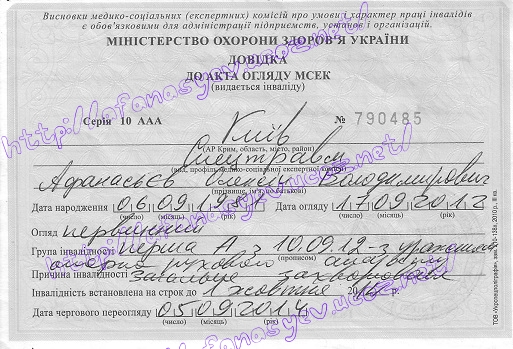 Висновки медико-соціальних (експертних) комісій про умови і характер праці інвалідів
є обов'язковими для адміністрації підприємств, установ і організацій.
МІНІСТЕРСТВО ОХОРОНИ ЗДОРОВ'Я УКРАЇНИ
ДОВІДКА
ДО АКТА ОГЛЯДУ МСЕК
(видається інваліду)
Серія 10 ААА № 790485
Київ
(АР Крим, область, місто, район)
Спецтравм
(вид, профіль медико-соціальної експертної комісії)
Афанасьєв Олексій Володимирович
(прізвище, ім'я, по батькові)
Дата народження 06 09 1981 Дата огляду 17 09 2012
(число) (місяць) (рік) (число) (місяць) (рік)
Огляд первинний
Група інвалідності перша А з 10.09.12 - з
(прописом)
опорно рухового апарату
Причина інвалідності загальне захворювання
Інвалідність встановлена на строк до 1 жовтня 2014 р.
Дата чергового переогляду 05 09 2014
(число) (місяць) (рік)
http://afanasyev.ucoz.net/